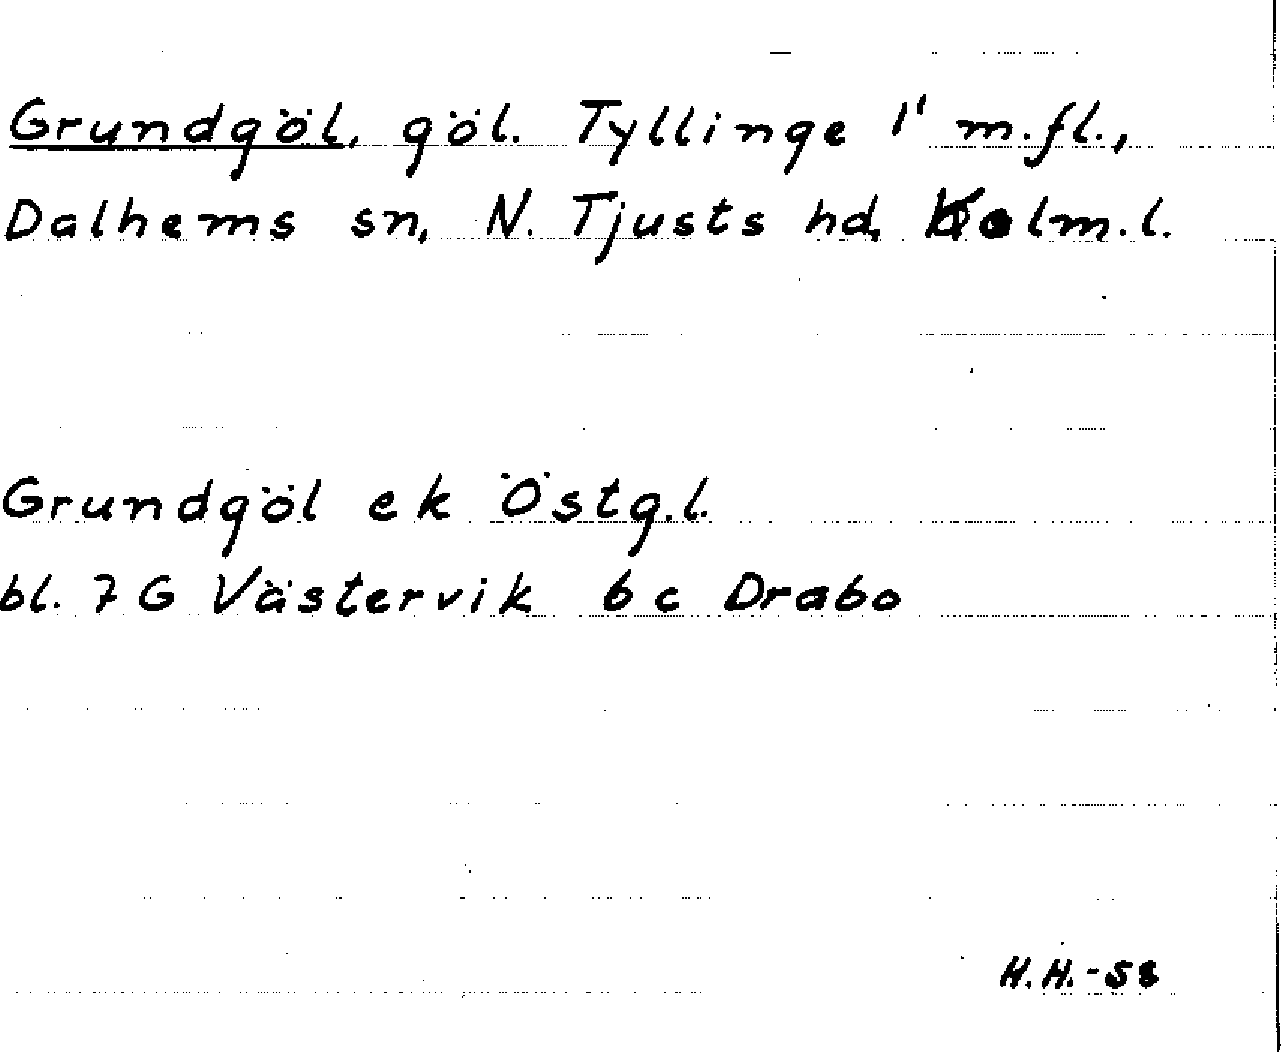 Grundgöl, göl. Tyllinge 1' m.fl.,
Dalhems sn, N. Tjusts hd, Kalm.l.
Grundgöl ek Östg.l.
bl. 7 G Västervik 6 c Drabo
H.H.-58